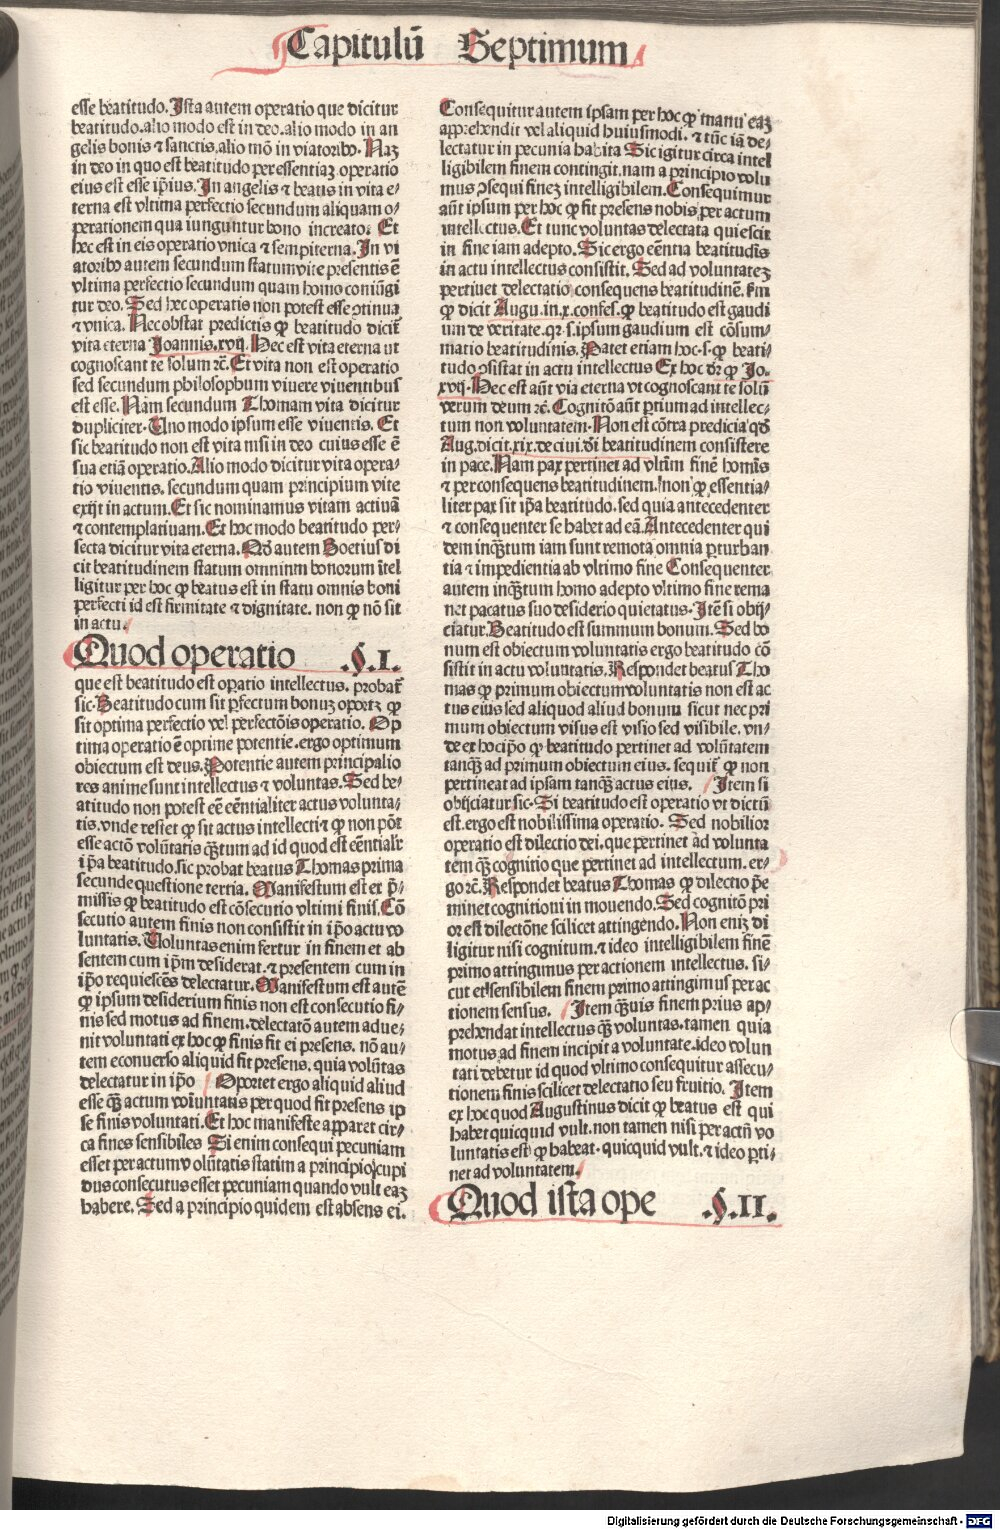 Capitulū Septimum
esse beatitudo. Ista autem operatio que dicitur
beatitudo. alio modo est in deo. alio modo in an
gelis bonis ⁊ sanctis. alio mō in viatoribꝰ. Naꝫ
in deo in quo est beatitudo per essentiaꝫ operatio
eius est esse ip̄ius. In angelis ⁊ beatis in vita e⸗
terna est vltima perfectio secundum aliquam o⸗
perationem qua iunguntur bono increato. Et
hec est in eis operatio vnica ⁊ sempiterna. In vi
atoribꝰ autem secundum statum vite presentis ē
vltima perfectio secundum quam homo coniūgi
tur deo. Sed hec operatis non potest esse ꝯtinua
⁊ vnica. Nec obstat predictis ꝙ beatitudo dicit̄
vita eterna Joannis. xvij. Hec est vita eterna ut
cognoscant te solum ⁊c̄. Et vita non est operatio
sed secundum philosophum viuere viuentibus
est esse. Nam secundum Thomam vita dicitur
dupliciter. Uno modo ipsum esse viuentis. Et
sic beatitudo non est vita nisi in deo cuius esse ē
sua etiā operatio. Alio modo dicitur vita opera⸗
tio viuentis. secundum quam principium vite
exijt in actum. Et sic nominamus vitam actiuā
⁊ contemplatiuam. Et hoc modo beatitudo per⸗
fecta dicitur vita eterna. Qd̄ autem Boetius di
cit beatitudinem statum omninm bonorum ītel
ligitur per hoc ꝙ beatus est in statu omnis boni
perfecti id est firmitate ⁊ dignitate. non ꝙ nō sit
in actu.
Quod operatio .§.I.
que est beatitudo est oꝑatio intellectus. probat̄
sic. Beatitudo cum sit ꝑfectum bonuꝫ oportꝫ ꝙ
sit optima perfectio vel perfectōis operatio. Op
tima operatio ē optime potentie. ergo optimum
obiectum est deus. Potentie autem principalio
res anime sunt intellectus ⁊ voluntas. Sed be⸗
atitudo non potest eē eēntialiter actus volunta⸗
tis. vnde restet ꝙ sit actus intellectꝰ ⁊ ꝙ non pōt
esse actꝰ volūtatis q̄ꝫtum ad id quod est eēntialr̄
ip̄a beatitudo. sic probat beatus Thomas prima
secunde questione tertia. Manifestum est et p̄⸗
missis ꝙ beatitudo est cōsecutio vltimi finis. Cō
secutio autem finis non consistit in ip̄o actu vo
luntatis. Uoluntas enim fertur in finem et ab
sentem cum ip̄m desiderat. ⁊ presentem cum in
ip̄o requiescēs delectatur. Manifestum est autē
ꝙ ipsum desiderium finis non est consecutio fi⸗
nis sed motus ad finem. delectatō autem adue⸗
nit voluntati ex hoc ꝙ finis fit ei presens. nō au⸗
tem econuerso aliquid fit presens. quia volūtas
delectatur in ip̄o Oportet ergo aliquid aliud
esse q̄ꝫ actum voluntatis per quod fit presens ip
se finis voluntati. Et hoc manifeste apparet cir⸗
ca fines sensibiles Si enim consequi pecuniam
esset per actum volūtatis statim a principio cupi
dus consecutus esset pecuniam quando vult eaꝫ
habere. Sed a principio quidem est absens ei.
Consequitur autem ipsam per hoc ꝙ manu eaꝫ
apprehendit vel aliquid huiusmodi. ⁊ tūc iā de⸗
lectatur in pecunia habita Sic igitur circa intel
ligibilem finem contingit. nam a principio volu
mus ꝯsequi fineꝫ intelligibilem. Consequimur
aūt ipsum per hoc ꝙ fit presens nobis per actum
intellectus. Et tunc voluntas delectata quiescit
in fine iam adepto. Sic ergo eēntia beatitudīs
in actu intellectus consistit. Sed ad voluntateꝫ
pertinet delectatio consequens beatitudinē. Fm
ꝙ dicit Augu. in. x. confes. ꝙ beatitudo est gaudi
um de veritate. qꝛ. s. ipsum gaudium est cōsum⸗
matio beatitudinis. Patet etiam hoc. s. ꝙ beati⸗
tudo ꝯsistat in actu intellectus Ex hoc dr̄ ꝙ Jo.
xvij. Hec est aūt via eterna vt cognoscant te solū
verum deum ⁊c̄. Cognitō aūt ꝑtium ad intellec⸗
tum non voluntatem. Non est cōtra predicta qd̄
Aug. dicit. xix. de ciui. dei beatitudinem consistere
in pace. Nam pax pertinet ad vltim̄ finē homīs
⁊ per consequens beatitudinem. non ꝙ essentia⸗
liter pax sit ip̄a beatitudo. sed quia antecedenter
⁊ consequenter se habet ad eā. Antecedenter qui
dem inq̄ꝫtum iam sunt remota omnia ꝑturban
tia ⁊ impedientia ab vltimo fine Consequenter
autem inq̄ꝫtum homo adepto vltimo fine rema
net pacatus suo desiderio quietatus. Itē si obij⸗
ciatur. Beatitudo est summum bonum. Sed bo
num est obiectum voluntatis ergo beatitudo cō
sistit in actu voluntatis. Respondet beatus Tho
mas ꝙ primum obiectum voluntatis non est ac
tus eius sed aliquod aliud bonum sicut nec pri
mum obiectum visus est visio sed visibile. vn⸗
de ex hoc ip̄o ꝙ beatitudo pertinet ad volūtatem
tanq̄ꝫ ad primum obiectum eius. sequit̄ ꝙ non
pertineat ad ipsam tanq̄ꝫ actus eius. Item si
obijciatur sic. Si beatitudo est operatio vt dictū
est. ergo est nobilissima operatio. Sed nobilior
operatio est dilectio dei. que pertinet ad volunta
tem q̄ꝫ cognitio que pertinet ad intellectum. er⸗
go ⁊c̄. Respondet beatus Thomas ꝙ dilectio p̄e
minet cognitioni in mouendo. Sed cognitō pri
or est dilectōne scilicet attingendo. Non eniꝫ di
ligitur nisi cognitum. ⁊ ideo intelligibilem finē
primo attingimus per actionem intellectus. si⸗
cut et sensibilem finem primo attingimus per ac
tionem sensus. Item q̄ꝫuis finem prius ap⸗
prehendat intellectus q̄ꝫ voluntas. tamen quia
motus ad finem incipit a voluntate. ideo volun
tati debetur id quod vltimo consequitur assecu⸗
tionem finis scilicet delectatio seu fruitio. Item
ex hoc quod Augustinus dicit ꝙ beatus est qui
habet quicquid vult. non tamen nisi per actū vo
luntatis est ꝙ habeat. quicquid vult. ⁊ ideo ꝑti⸗
net ad voluntatem.
Quod ista ope .§.II.
Digitalisierung gefördert durch die Deutsche Forschungsgemeinschaft - DFG